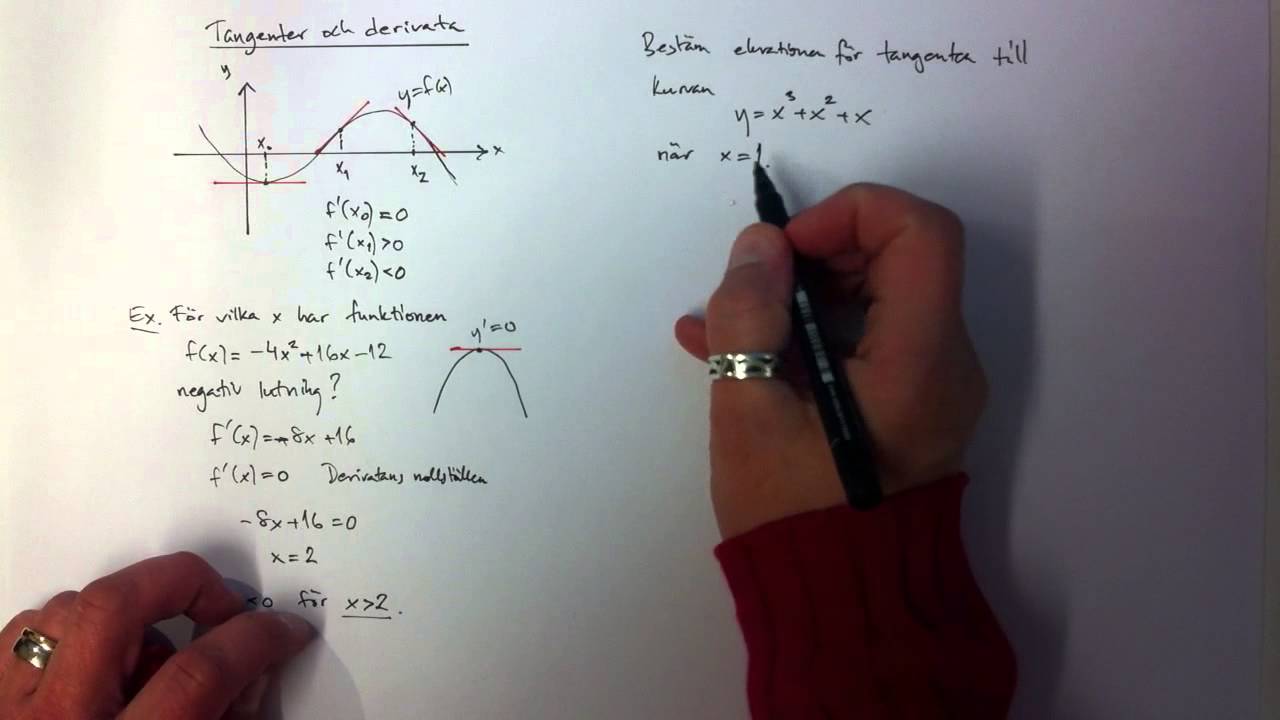 Tangenter och derivata
y
y=f(x)
x₀
x
x₁
x₂
f'(x₀)=0
f'(x₁)>0
f'(x₂)<0
Ex. För vilka x har funktionen
f(x)=-4x²+16x-12
negativ lutning?
y'=0
f'(x)=-8x+16
f'(x)=0 Derivatans nollställen
-8x+16=0
x=2
<0 för x>2.
Bestäm ekvationen för tangenten till
kurvan
y=x³+x²+x
när x=1.